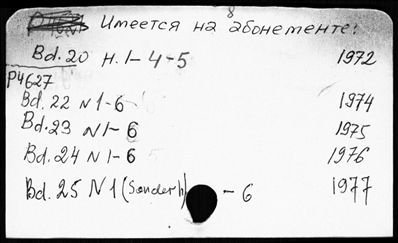 Имеется на абонементе:
8
Bd. 20 н. 1-4-5 1972
P4627
Bd. 22 N 1-6 1974
Bd. 23 N 1-6 1975
Bd. 24 N 1-6 1976
Bd. 25 N 1 (Sonderh) - 6 1977